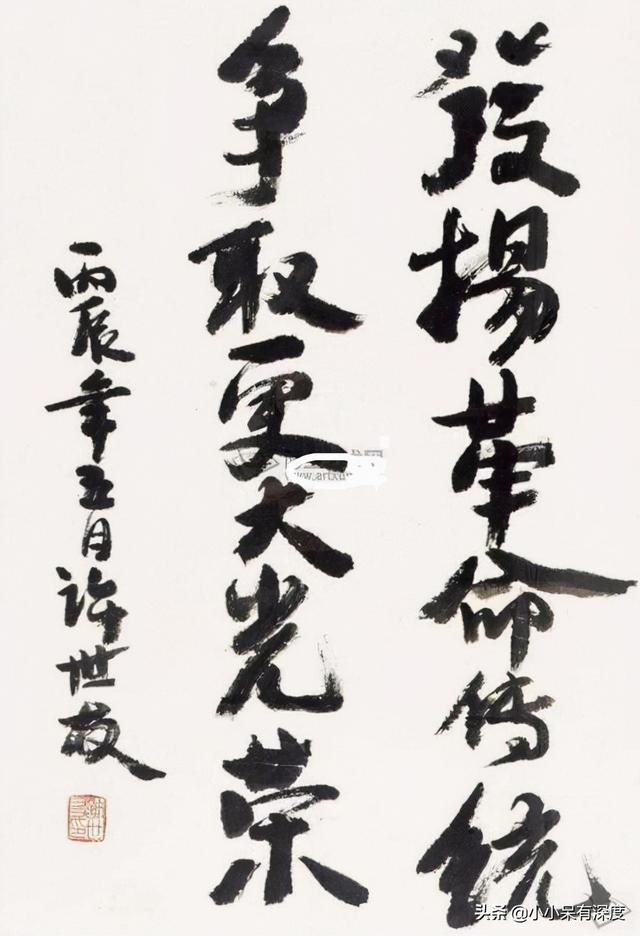 發揚革命传統
争取更大光荣
丙辰年五月许世友
头条 @小小呆有深度